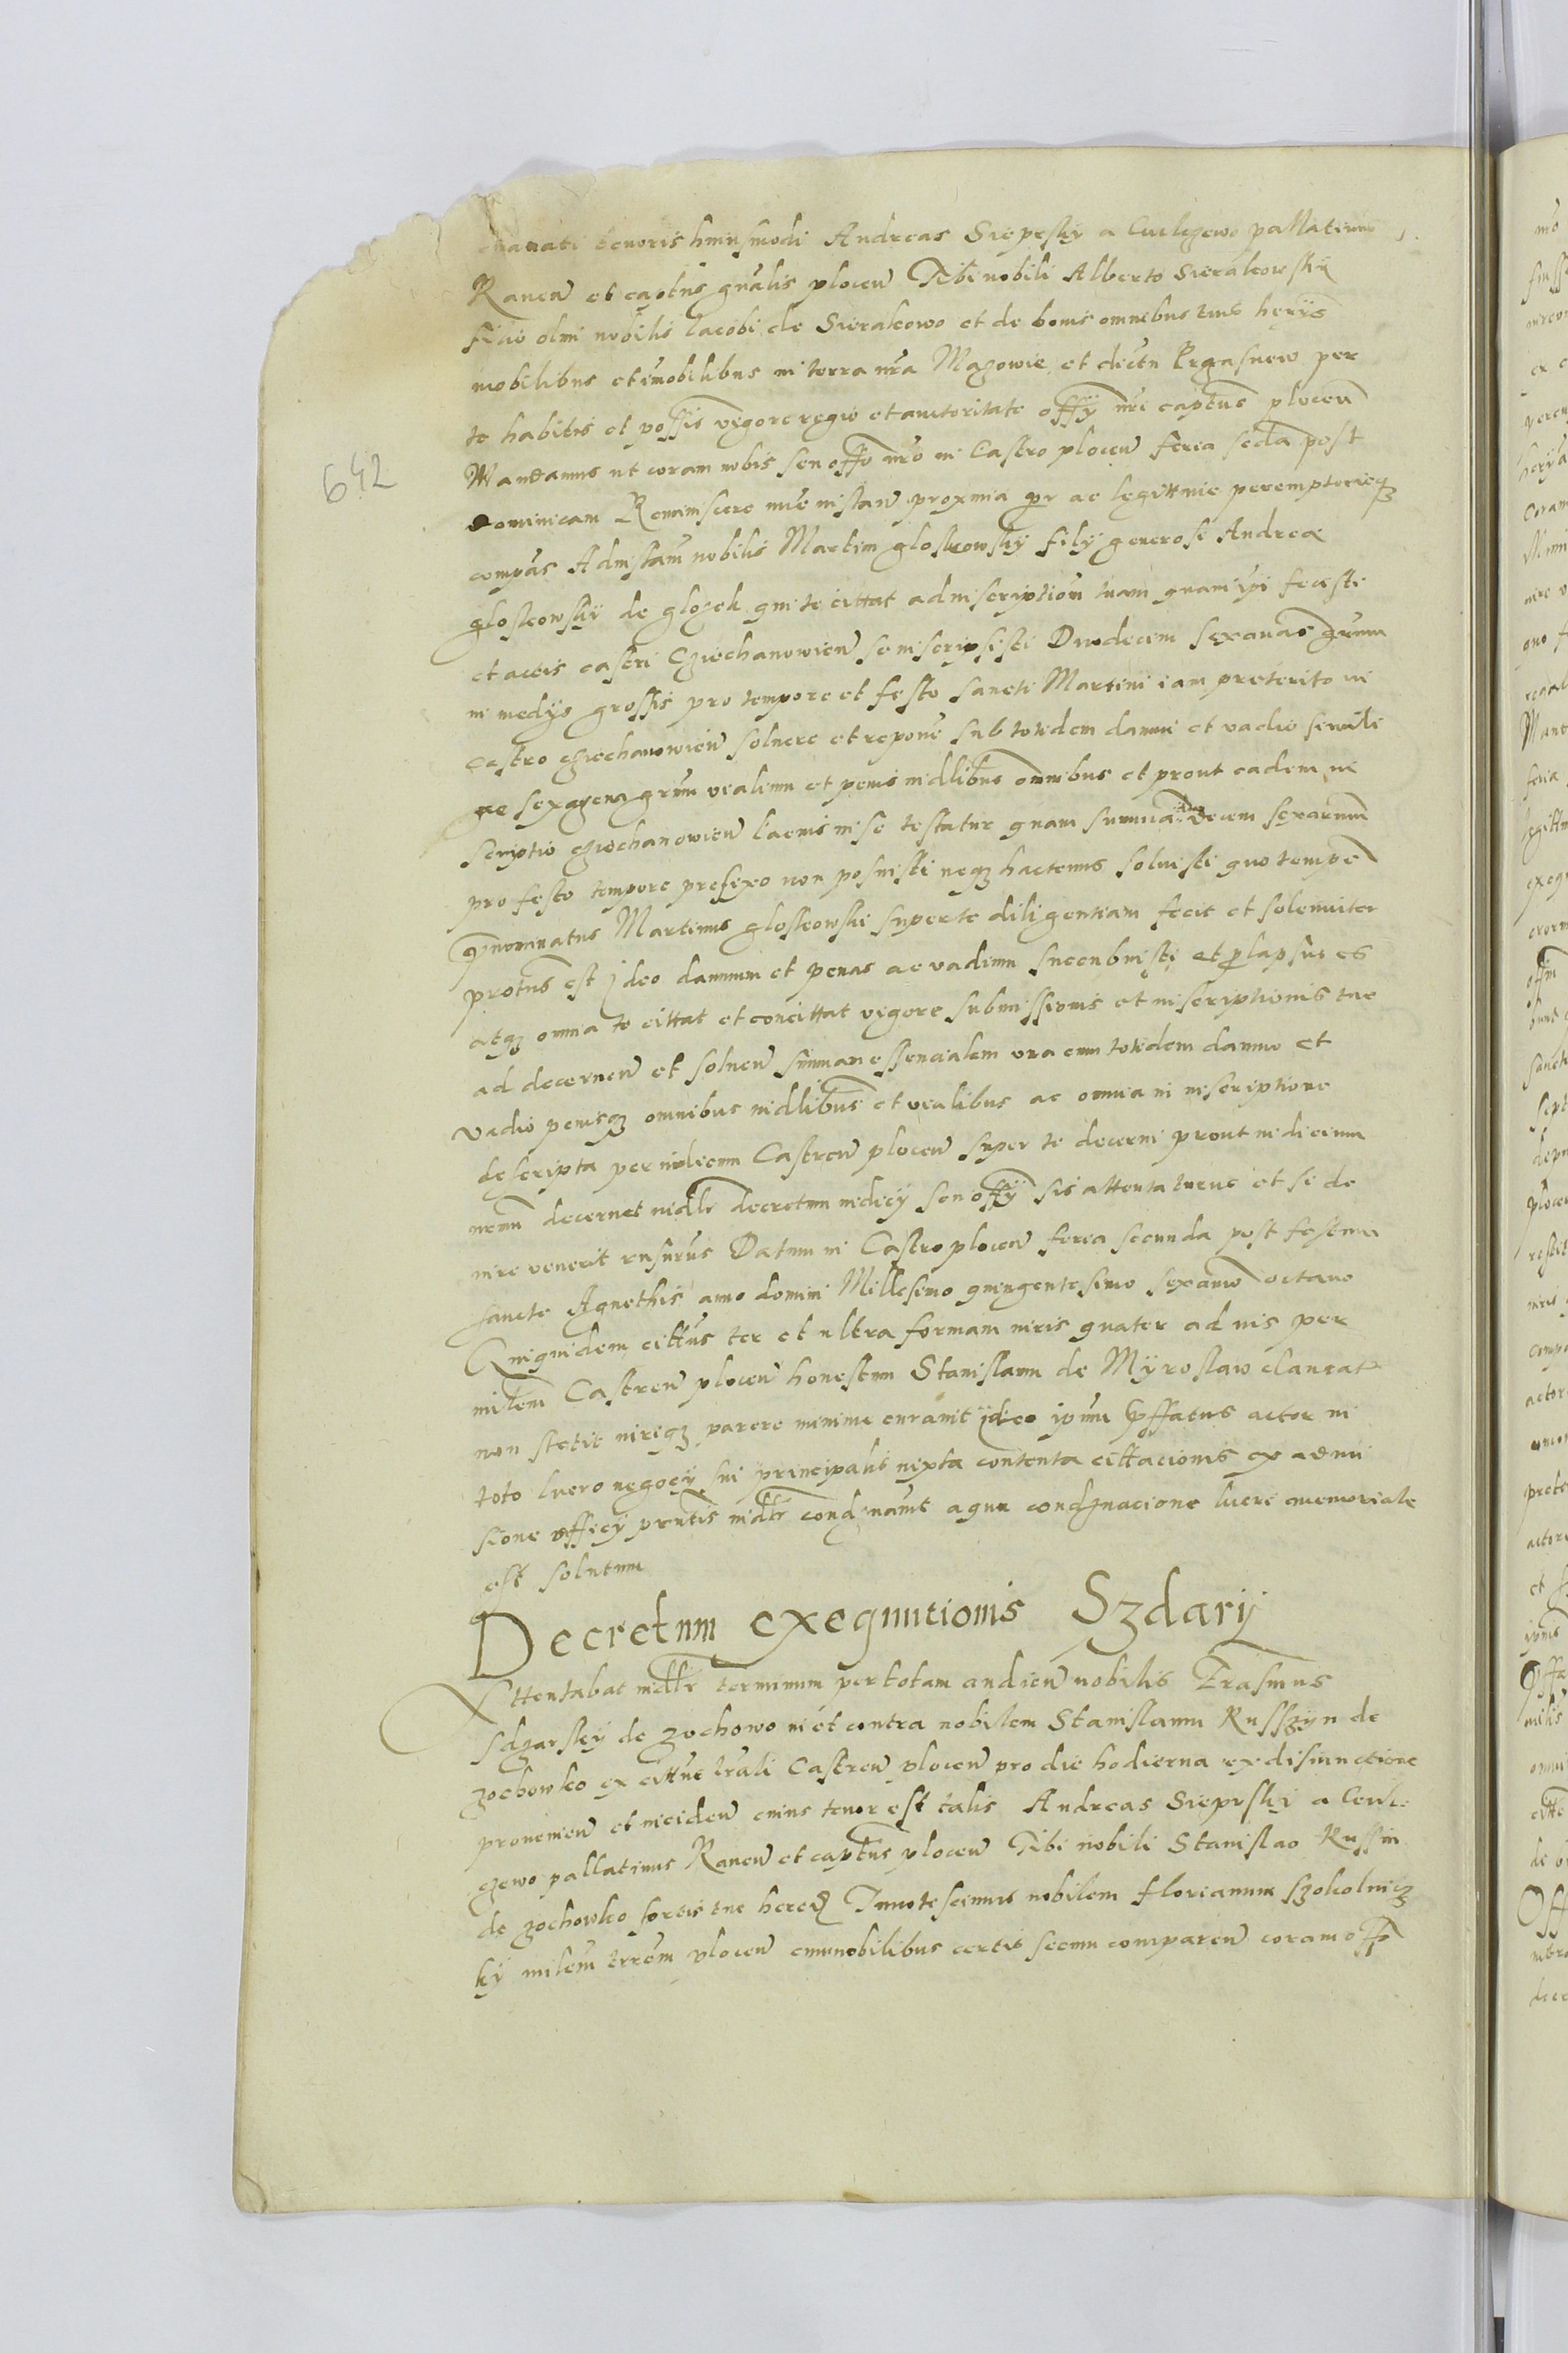 tenoris huiusmodi Andreas Sieprsky a Gulczewo pallatinus
Raven et captus gnalis plocen Tibi nobili Alberto Sierakowsky
filio olim nobilis Iacobi de Sierakowo et de bonis omnibus tuis heriis
mobilibus et imobilibus in terra nra Mazowie et per
te habitis et possis vigore regio et auctoritate offy nri captus plocen
Mandamus ut coram nobis seu offo nro in Castro plocen feria secda post
dominicam Reminiscere nue instan proxima pr ac legittime peremptorieqz
compas Ad instam nobilis Martini gloskowsky filij generosi Andree
gloskowsky de glozek qui te cittat ad inscriptiom tuam quam ipi fecisti
et actis castri Cziechanowien se inscripsisti Duodecem sexanas
in medys grossis pro tempore et festo sancti Martini iam preterito in
Castro cziechanowien soluere et repone sub totidem damni et vadio
sexagena grum vialium et penis iudlibus omnibus et prout eadem in
scriptio cziechanowien lacius in se testatur quam decem sexarum
pro festo tempore prefixo non posuisti neqz hactenus soluisti quo tempe
prenominatus Martinus gloskowski super te diligentiam fecit et solemniter
protus est Ideo damnum et penas ac vadium sucubuisti et plapsus es
atqz omnia te cittat et concittat vigore submissionis et inscriptionis tue
ad decernen et soluen sumam essencialem una cum totidem damno et
vadio penisqz omnibus iudlibus et vialibus ac omnia in inscriptione
descripta per iudicium Castren plocen super te decerni prout iudicium
nrum decernet iudlr decretum iudicy seu offy sis attentaturus et se de
iure venerit rnsurus Datum in Castro plocen feria secunda post festum
sancte Agnethis anno domini Millesimo quingentesimo sexamo octauo
Quiquidem cittus ter et ultra formam iuris quater ad nis per
milem Castren plocen honestum Stanislaum de Myroslaw clamat
non stetit iuriqz parere minime curauit ideo ipum pffatus actor in
toto lucro negocy sui principalis iuxta contenta cittacionis ex admi
sione officy pntis iudlr condnauit aqua condnacione lucri memoriale
est solutum
Decretum exequutionis Szdarij
Attentabat iudlr terminum per totam audien nobilis Erasmus
Sdzarsky de zochowo in et contra nobilem Stanislaum Russzyn de
zochowko ex cittne lrali Castren plocen pro die hodierna ex disiunctione
prouenien et inciden cuius tenor est talis Andreas Sieprski a Gul
czewo pallatinus Raven et captus plocen Tibi nobili Stanislao Russin
de zochowko sortis tue hered Innotescimus nobilem florianum Szokolnicz
ky milem terrem plocen cum nobilibus certis secum comparen coram offo
642